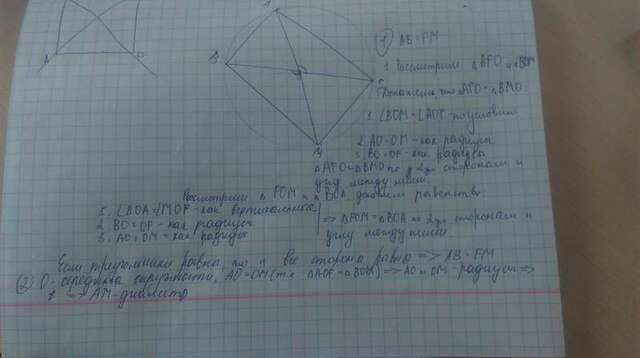 A D
B
F
M
1 AB = FM
1. Рассмотрим △AFO и △BOM
Докажем, что △AFO = △BMO
1. ∠BOM = ∠AOF - по условию
2. AO = OM - как радиусы
3. BO = OF - как радиусы
△AFO = △BMO по 2-ум сторонам и
углу между ними.
Рассмотрим △ FOM и △ BOA, докажем равенство:
1. ∠BOA = ∠MOF - как вертикальные
2. BO = OF - как радиусы
3. AO = OM - как радиусы
=> △FOM = △BOA по 2-ум сторонам и
углу между ними.
Если треугольники равны, то и все стороны равны => AB = FM
2 O - середина окружности, AO = OM (т.к △AOF = △BOM) => AO и OM - радиусы =>
=> AM - диаметр